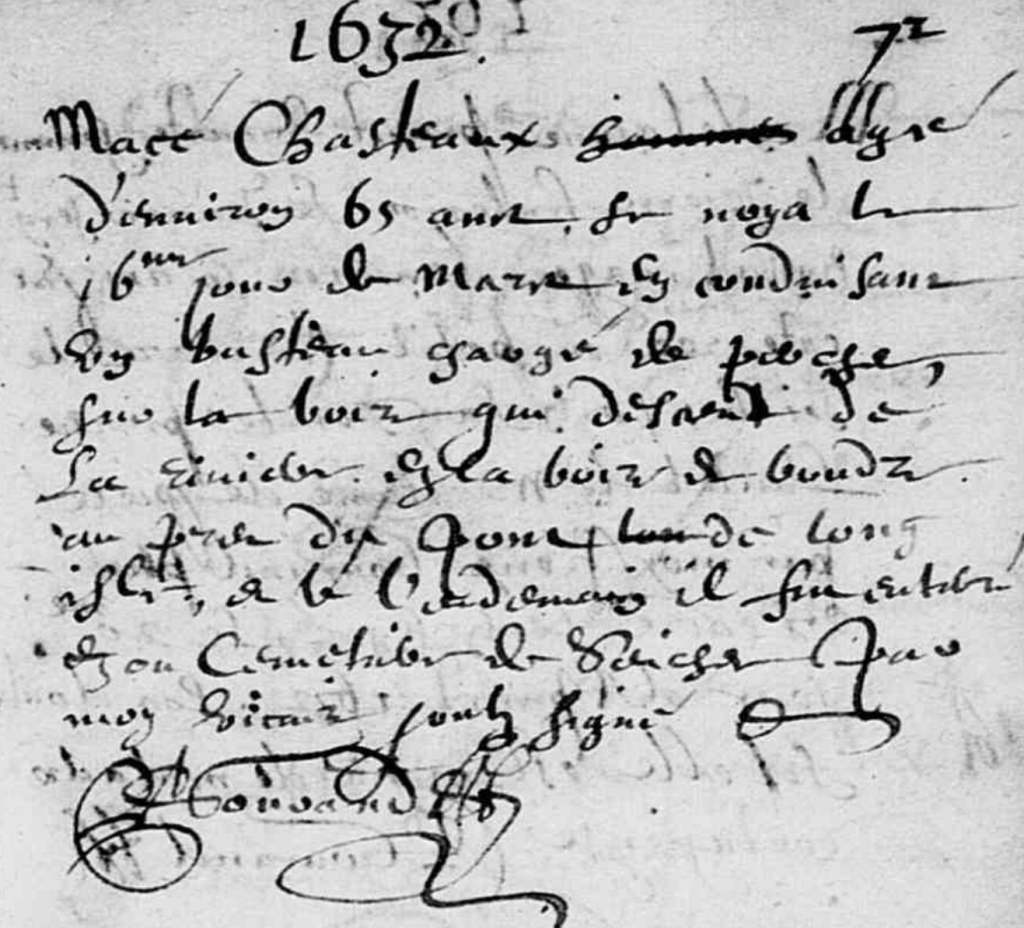 1632. 72
Macé Chasteaux homme aigé
d'environ 65 ans, se noya le
16me jour de Mars en conduisant
un basteau chargé de
sur la boire qui descent de
La riviere en la boire de
au pres du pont de long
isle, et le lendemain il fut enterré
on Cemetiere de Seiches par
moy vicaire soubz signé